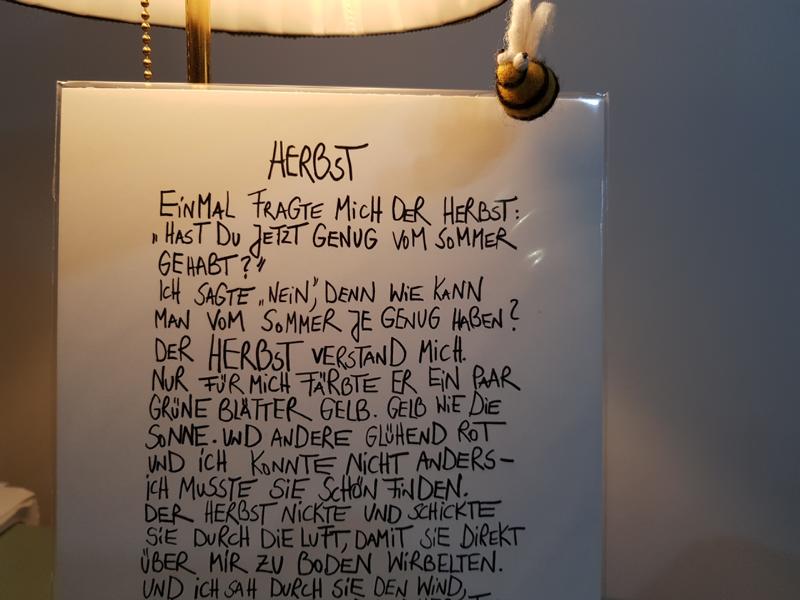 HERBST
EINMAL FRAGTE MICH DER HERBST:
„HAST DU JETZT GENUG VOM SOMMER
GEHABT?"
ICH SAGTE „NEIN", DENN WIE KANN
MAN VOM SOMMER JE GENUG HABEN?
DER HERBST VERSTAND MICH.
NUR FÜR MICH FÄRBTE ER EIN PAAR
GRÜNE BLÄTTER GELB. GELB WIE DIE
SONNE. UND ANDERE GLÜHEND ROT
UND ICH KONNTE NICHT ANDERS-
ICH MUSSTE SIE SCHÖN FINDEN.
DER HERBST NICKTE UND SCHICKTE
SIE DURCH DIE LUFT, DAMIT SIE DIREKT
ÜBER MIR ZU BODEN WIRBELTEN.
UND ICH SAH DURCH SIE DEN WIND,